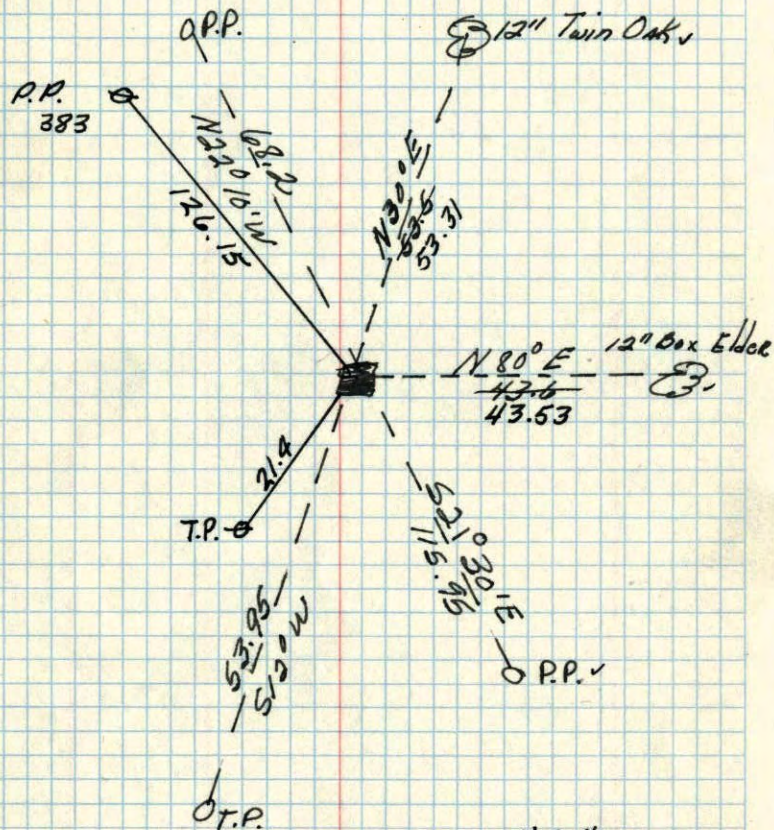 P.P.
12" Twin Oak
P.P.
383
68.2
N22°10'W
126.15
N30°E
53.5
53.31
N 80° E
12" Box Elder
43.6
43.53
21.4
T.P.
S21°30'E
115.95
53.95
S12°W
P.P.
T.P.